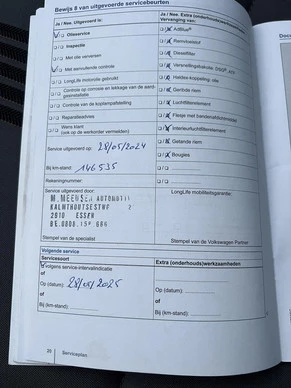 Bewijs 8 van uitgevoerde servicebeurten
Ja / Nee, Uitgevoerd is:
Olieservice
Inspectie
Met olie verversen
Met aanvullende controle
LongLife motorolie gebruikt
Controle op corrosie en lekkage van de aardgasinstallatie
Controle van de koplampafstelling
Reparatieadvies
Wens klant
(ook op de werkorder vermelden)
Service uitgevoerd op: 28/05/2024
Bij km-stand: 146535
Rekeningnummer:
Service uitgevoerd door:
M.MEEUSEN AUTOMOTIV
KALMTHOUTSESTWP 2
2910 ESSEN
Stempel van de specialist
Ja / Nee, Extra (onderhouds)werkzaamheden
Vervanging van:
AdBlue®
Remvloeistof
Dieselfilter
Haldex-koppeling: olie
Geribde riem
Luchtfilterelement
Flesje met bandenafdichtmiddel
Interieurluchtfilterelement
Getande riem
Bougies
LongLife mobiliteitsgarantie:
Stempel van de Volkswagen Partner
Volgende service
Servicesoort
volgens service-intervalindicatie
of
Op (datum): 28/05/2025
of
Bij (km-stand):
Extra (onderhouds)werkzaamheden:
Op (datum):
of
Bij (km-stand):
20 Serviceplan